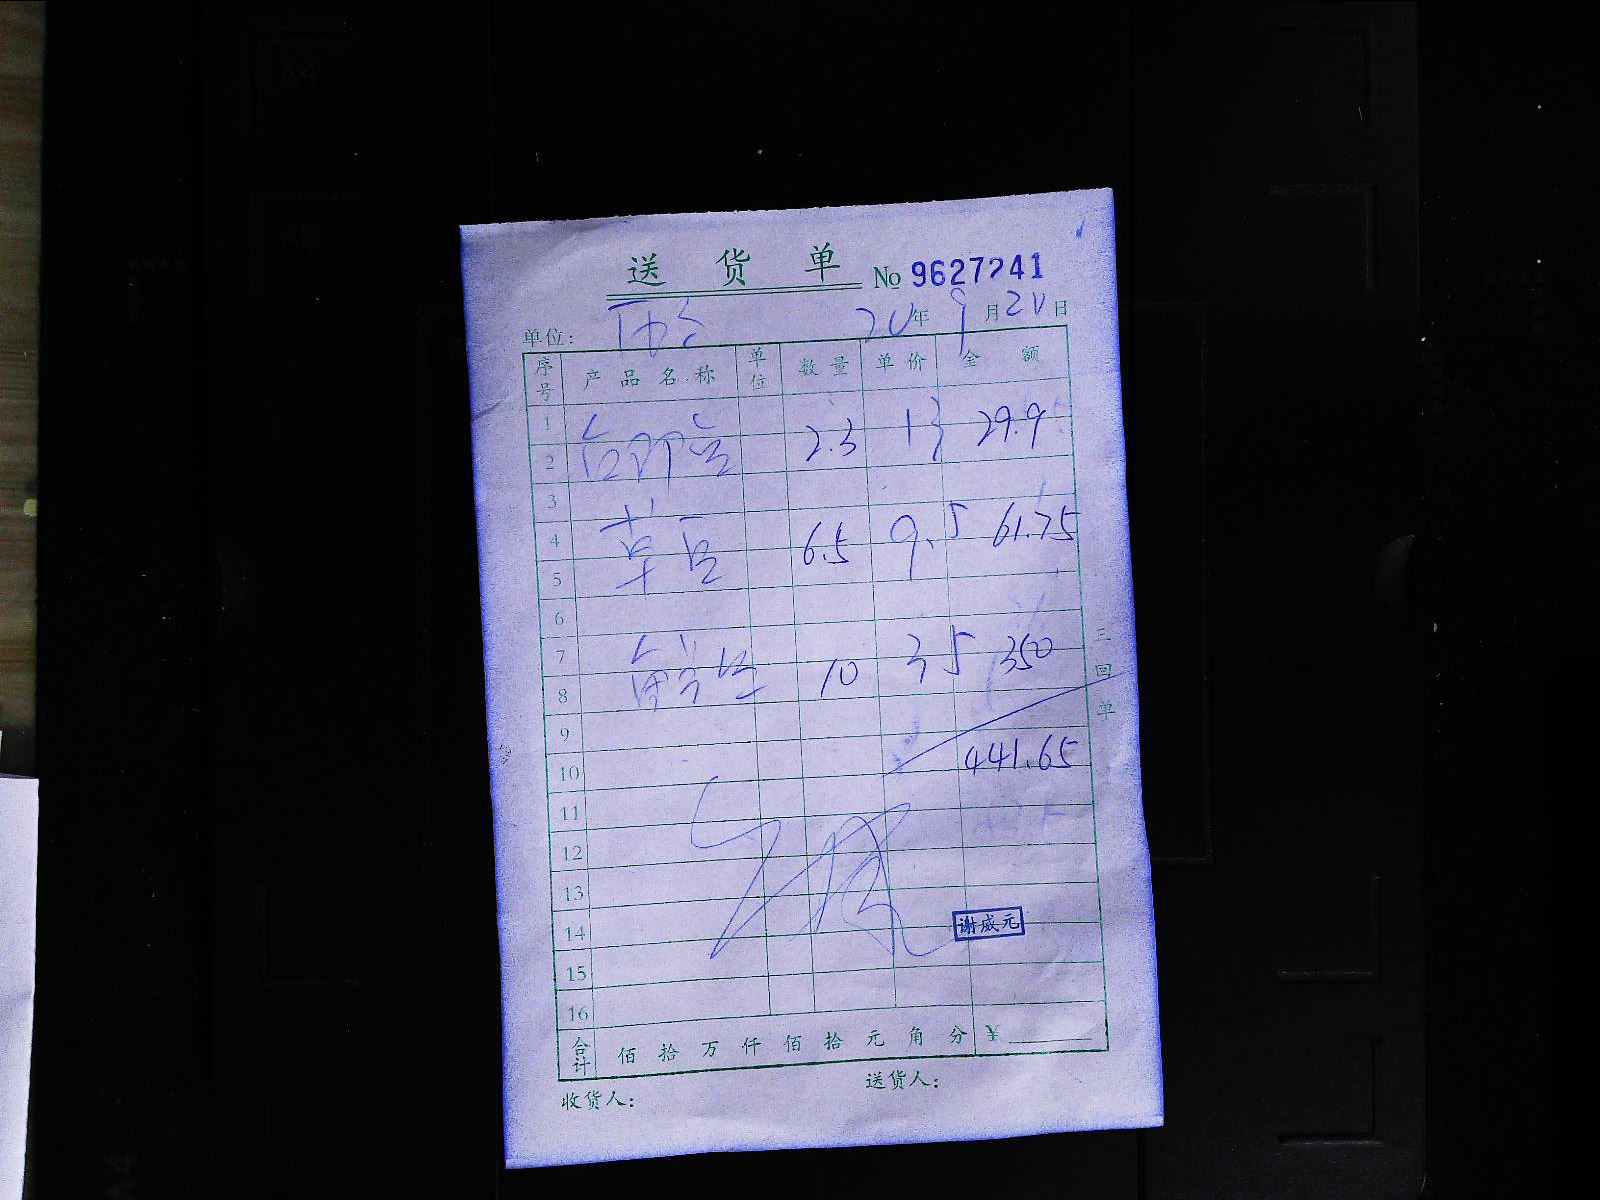 送 货 单 No 9627241
20年9月20日
单位:
序号 产品名称 单位 数量 单价 金额
1
2 2.3 13 29.9
3
4 草 6.5 9.5 61.75
5
6
7
8 10 35 350
9
10 441.65
11
12
13
14 谢威元
15
16
合计 佰 拾 万 仟 佰 拾 元 角 分 ¥
收货人: 送货人:
三回单